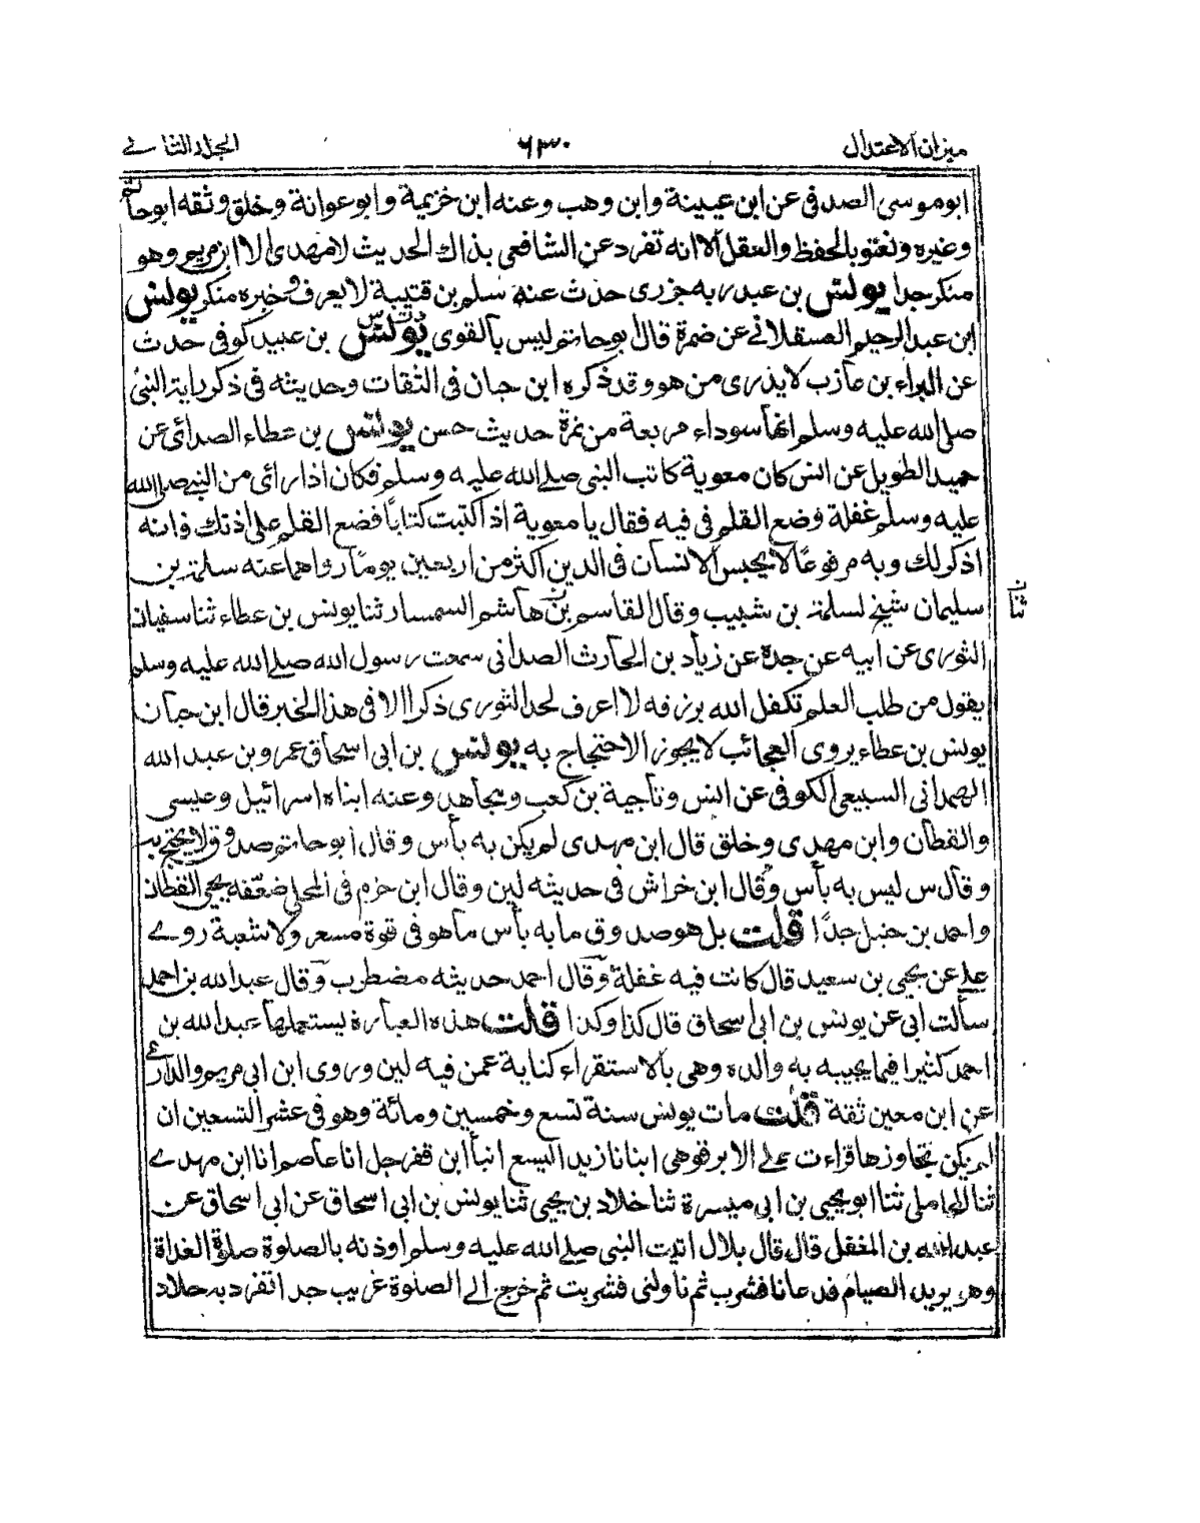 ميزان الاعتدال ٦٣٠ الجلد الثاني
ابو موسى الصدفى عن ابن عيينة وابن وهب وعنه ابن خزيمة وابو عوانة وخلق وثقه ابو حاتم
وغيره ونعتوه بالحفظ والعقل الا انه تفرد عن الشافعى بذاك الحديث لا مهدى الا ابن مريم وهو
منكر جدا يونس بن عبد ربه جزرى حدث عنه سلم بن قتيبة لا يعرف وخبره منكر يونس
ابن عبد الرحيم العسقلانے عن ضمرة قال ابو حاتم ليس بالقوى يونس دت س بن عبيد كوفى حدث
عن البراء بن عازب لا يدرى من هو وقد ذكره ابن حبان فى الثقات وحديثه فى ذكر راية النبى
صلى الله عليه وسلم انها سوداء مربعة من نمرة حديث حسن يونس بن عطاء الصدائى عن
حميد الطويل عن انس كان معوية كاتب النبى صلے الله عليه وسلم فكان اذا رائى من النبے صلى الله
عليه وسلم غفلة وضع القلم فى فيه فقال يا معوية اذا كتبت كتابا فضع القلم على اذنك فانه
اذكر لك وبه مرفوعًا لا يحبس الانسان فى الدين اكثر من اربعين يومًا رواهما عنه سلمة بن
سليمان شيخ لسلمة بن شبيب وقال القاسم بن هاشم السمسار ثنا يونس بن عطاء ثنا سفيان
ثنا
الثورى عن ابيه عن جده عن زياد بن الحارث الصدائى سمعت رسول الله صلے الله عليه وسلم
يقول من طلب العلم تكفل الله برزقه لا اعرف لجد الثورى ذكرا الا فى هذا الخبر قال ابن حبان
يونس بن عطاء يروى العجائب لا يجوز الاحتجاج به يونس بن ابى اسحاق عمرو بن عبد الله
الهمدانى السبيعى الكوفى عن انس وناجية بن كعب ومجاهد وعنه ابناه اسرائيل وعيسى
والقطان وابن مهدى وخلق قال ابن مهدى لم يكن به بأس وقال ابو حاتم صدوق لا يحتج به
وقال س ليس به بأس وقال ابن خراش فى حديثه لين وقال ابن حزم فى المحلى ضعفه يحيى القطان
واحمد بن حنبل جدًا قلت بل هو صدوق ما به بأس ما هو فى قوة مسعر ولا شعبة روے
علے عن يحيى بن سعيد قال كانت فيه غفلة وقال احمد حديثه مضطرب وقال عبد الله بن احمد
سألت ابى عن يونس بن ابى اسحاق قال كذا وكذا قلت هذه العبارة يستعملها عبد الله بن
احمد كثيرا فيما يجيبه به والده وهى بالاستقراء كناية عمن فيه لين وروى ابن ابى مريم والدارمے
عن ابن معين ثقة قلت مات يونس سنة تسع وخمسين ومائة وهو فى عشر التسعين ان
لم يكن تجاوزها قراءت علے الابرقوهى ابنانا زيد اليسع انبأ ابن قفرجل انا عاصم انا ابن مهدے
ثنا المحاملى ثنا ابو يحيى بن ابى ميسرة ثنا خلاد بن يحيى ثنا يونس بن ابى اسحاق عن ابى اسحاق عن
عبد الله بن المغفل قال قال بلال اتيت النبى صلے الله عليه وسلم اوذنه بالصلوة صلوة الغداة
وهو يريد الصيام فدعا نا فشرب ثم ناولنى فشربت ثم خرج الے الصلوة غريب جدا تفرد به خلاد